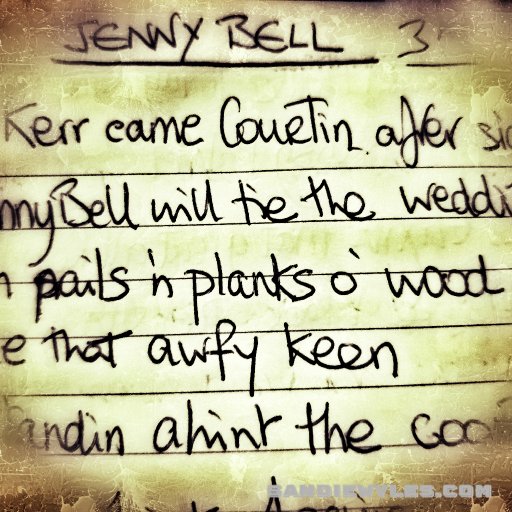 JENNY BELL 3
Kerr came Courtin after
nnyBell will tie the weddi
pails 'n planks o' wood
e that awfy keen
andin ahint the coo
SANDIEWYLES.COM